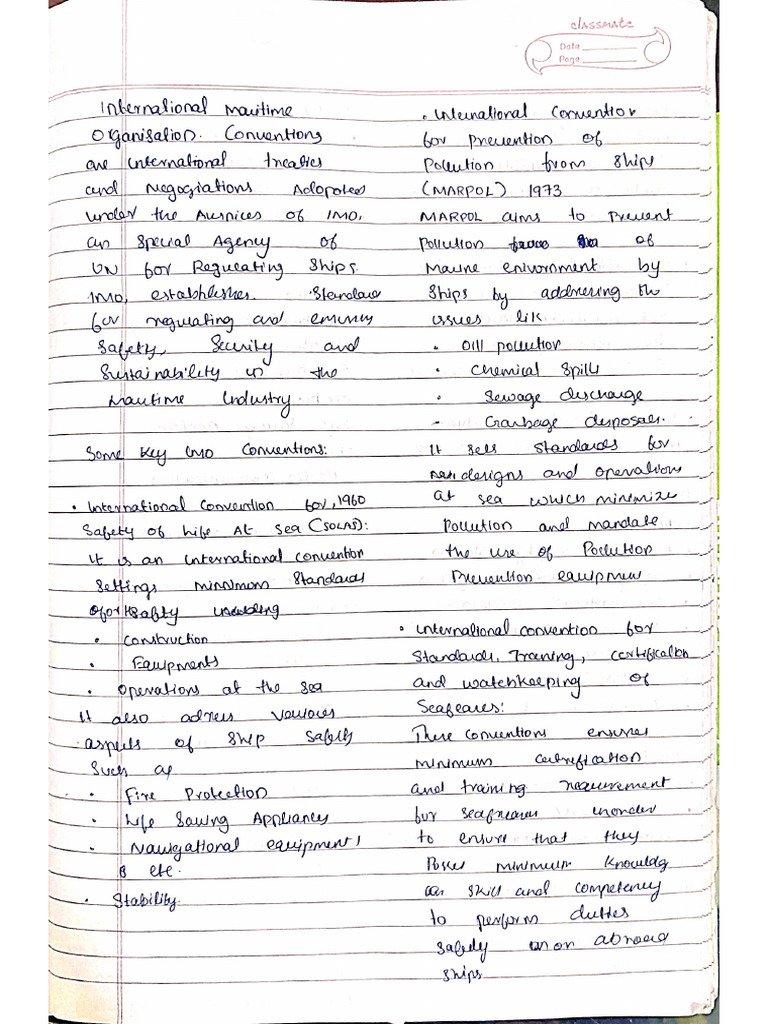 classmate
Date
Page
International Maritime
Organisation. Conventions
are international treaties
and Negogiations Adopoted
under the Auspices of IMO,
an Special Agency of
UN for Regulating Ships.
IMO, establishes. Standard
for regulating and
Safety, Security and
Sustainability in the
Maritime Industry
Some key IMO Conventions:
• International Convention for, 1960
Safety of Life At Sea (SOLAS):
It is an international convention
settings minimum standards
for safety
• Construction
• Equipments
• Operations at the sea
It also adress various
aspects of ship safety
Such as
• Fire Protection
• Life Saving Appliances
• Navigational equipments
etc.
• Stability.
• International Convention
for prevention of
Pollution from ships
(MARPOL) 1973
MARPOL aims to prevent
pollution of
Marine enivornment by
ships by addressing the
issues lik.
• Oill pollution
• Chemical spills
• Sewage discharge
- Garbage disposal.
It sets standards for
designs and operations
at sea which minimize
Pollution and mandate
the use of Pollution
Prevention equipment
• International convention for
Standards, Training, certification
and watchkeeping of
Seafearers:
These conventions ensures
minimum certification
and training requirement
for seafearers inorder
to ensure that they
Poses minimum knowldg
skill and competency
to perform duties
safely on abroad
ships